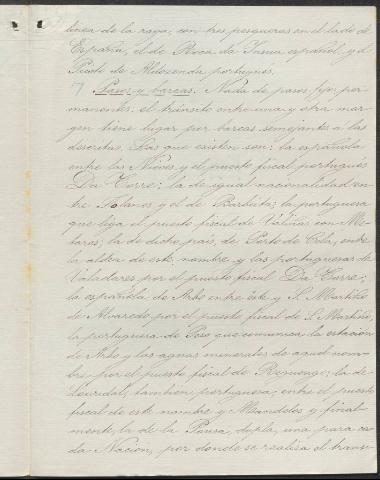 línea de la raya, con tres pesqueras en el lado de
España, el de Boca da Insua español, y el
Puerto de Aldozenda portugués.
7 Pasos y barcas. Nada de pasos fijos per-
manentes: el tránsito entre una y otra mar-
gen tiene lugar por barcas semejantes a las
descritas. Las que existen son: la española
entre las Nieves y el puesto fiscal portugués
Da Torre; la de igual nacionalidad en-
tre y el de Barbeita; la portuguesa
que liga el puesto fiscal de Valinas con
la de dicho país, de Porto de Cela, entre
la aldea de este nombre y las portuguesas de
Valadares por el puesto fiscal Da Torre;
la española de Arbo entre éste y S. Martiño
de Alvaredo por el puesto fiscal de S. Martiño,
la portuguesa de Poso que comunica la estación
de Arbo y las aguas minerales de aquel nom-
bre por el puesto fiscal de Reguengo; la de
Louridal, también portuguesa, entre el puesto
fiscal de este nombre y y final-
mente, la de la Pousa, dupla, una para ca-
da Nación, por donde se realiza el trans-